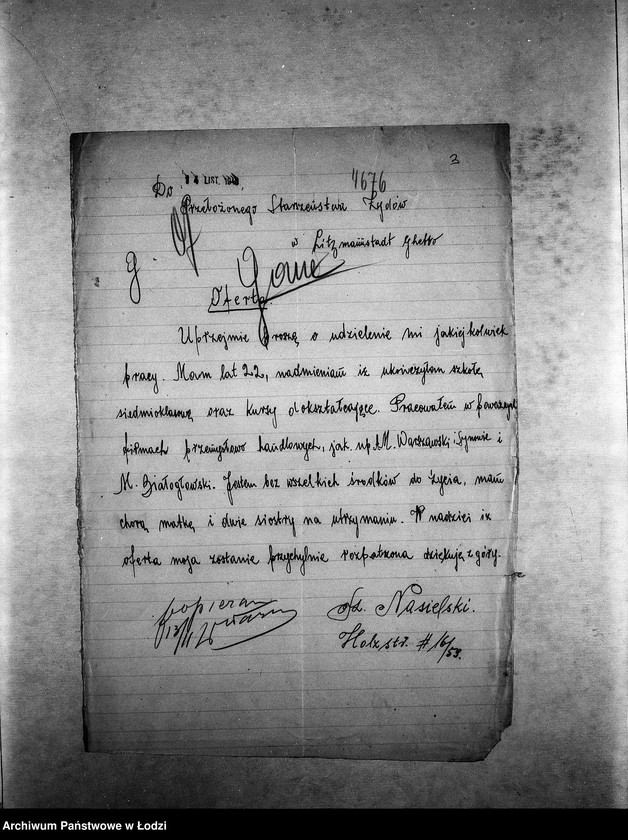 3
LIST. 4676
Do
Przełożonego Starszeństwa Żydów
w Litzmannstadt Ghetto
Oferta.
Uprzejmie proszę o udzielenie mi jakiejkolwiek
pracy. Mam lat 22, nadmieniam iż ukończyłam szkołę
siedmioklasową oraz kursy dokształcające. Pracowałem w poważnych
firmach przemysłowo handlowych, jak np. M. Warszawski i Synowie i
M. Białogłowski. Jestem bez wszelkich środków do życia, mam
chorą matkę i dwie siostry na utrzymaniu. W nadzieji iż
oferta moja zostanie przychylnie rozpatrzona dziękuję z góry.
popieram
Nasielski.
Holzstr. # 16/53.
Archiwum Państwowe w Łodzi